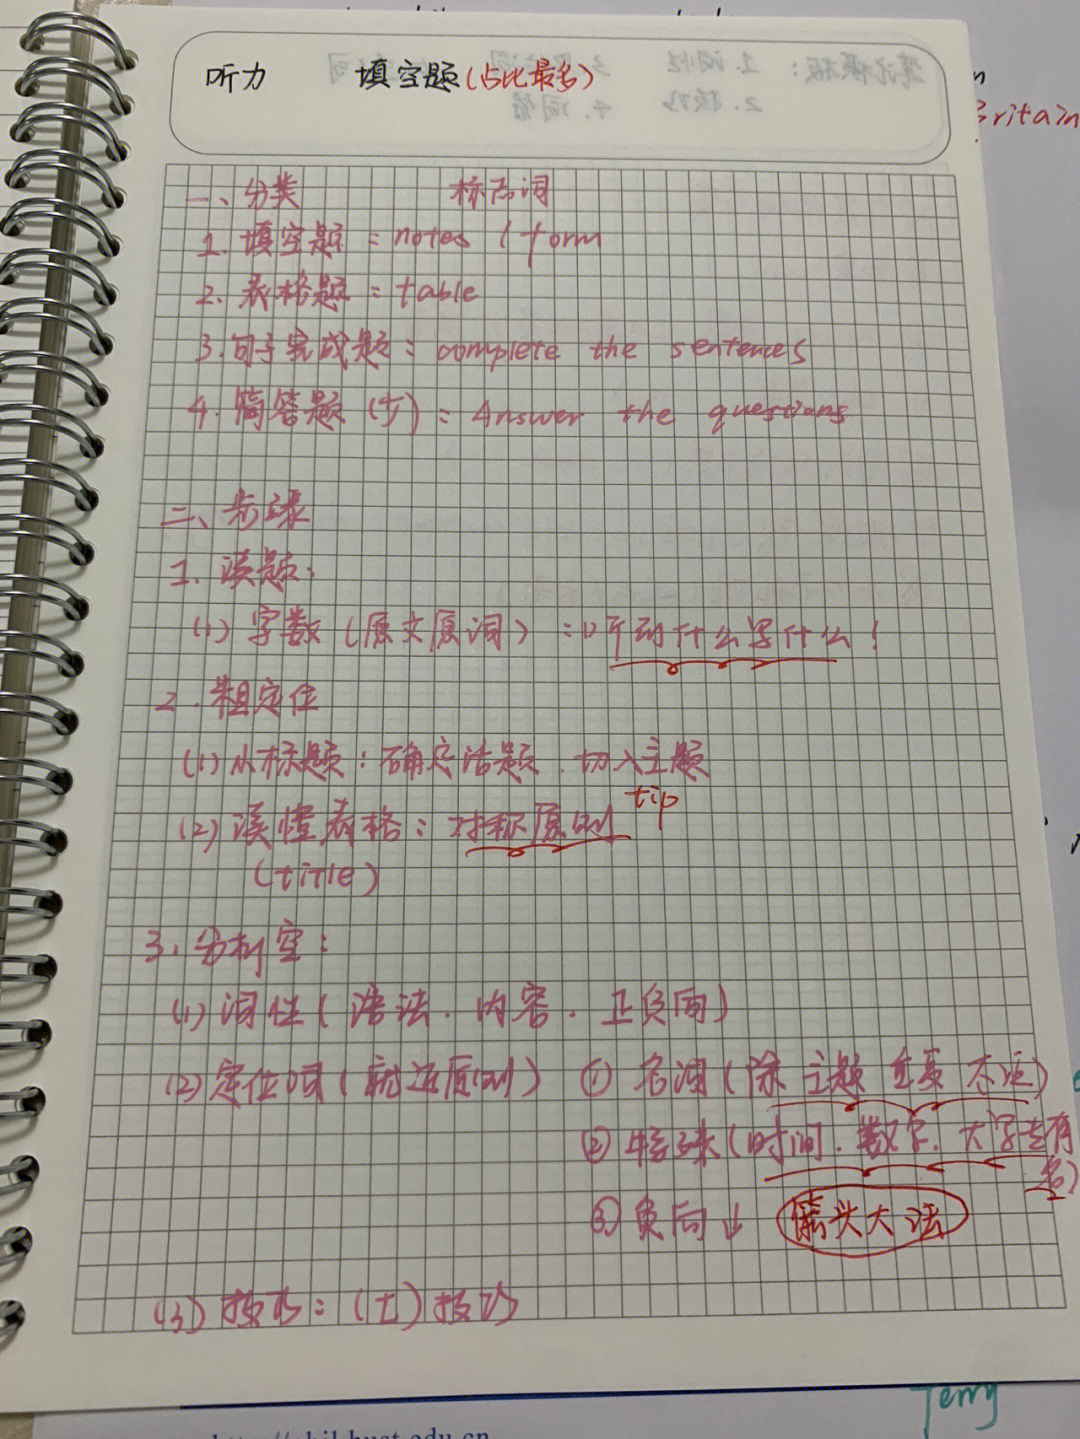 听力 填空题(占比最多)
一、分类 标志词
1. 填空题 = notes / form
2. 表格题 = table
3. 句子完成题: complete the sentences
4. 简答题 (少) = Answer the questions
二、步骤
1. 读题:
(1) 字数 (原文原词) = 听到什么写什么!
2. 粗定位
(1) 从标题: 确定话题. 切入主题
(2) 读懂表格: 对称原则 tip
(title)
3. 分析空:
(1) 词性 ( 语法. 内容. 正负向)
(2) 定位词 ( 就近原则) ① 名词 (除 主题 重复 不定)
② 特殊 (时间. 数字. 大写专有名)
③ 负向 ↓ 箭头大法
(3) 技巧: (七) 技巧
Britain
Terry